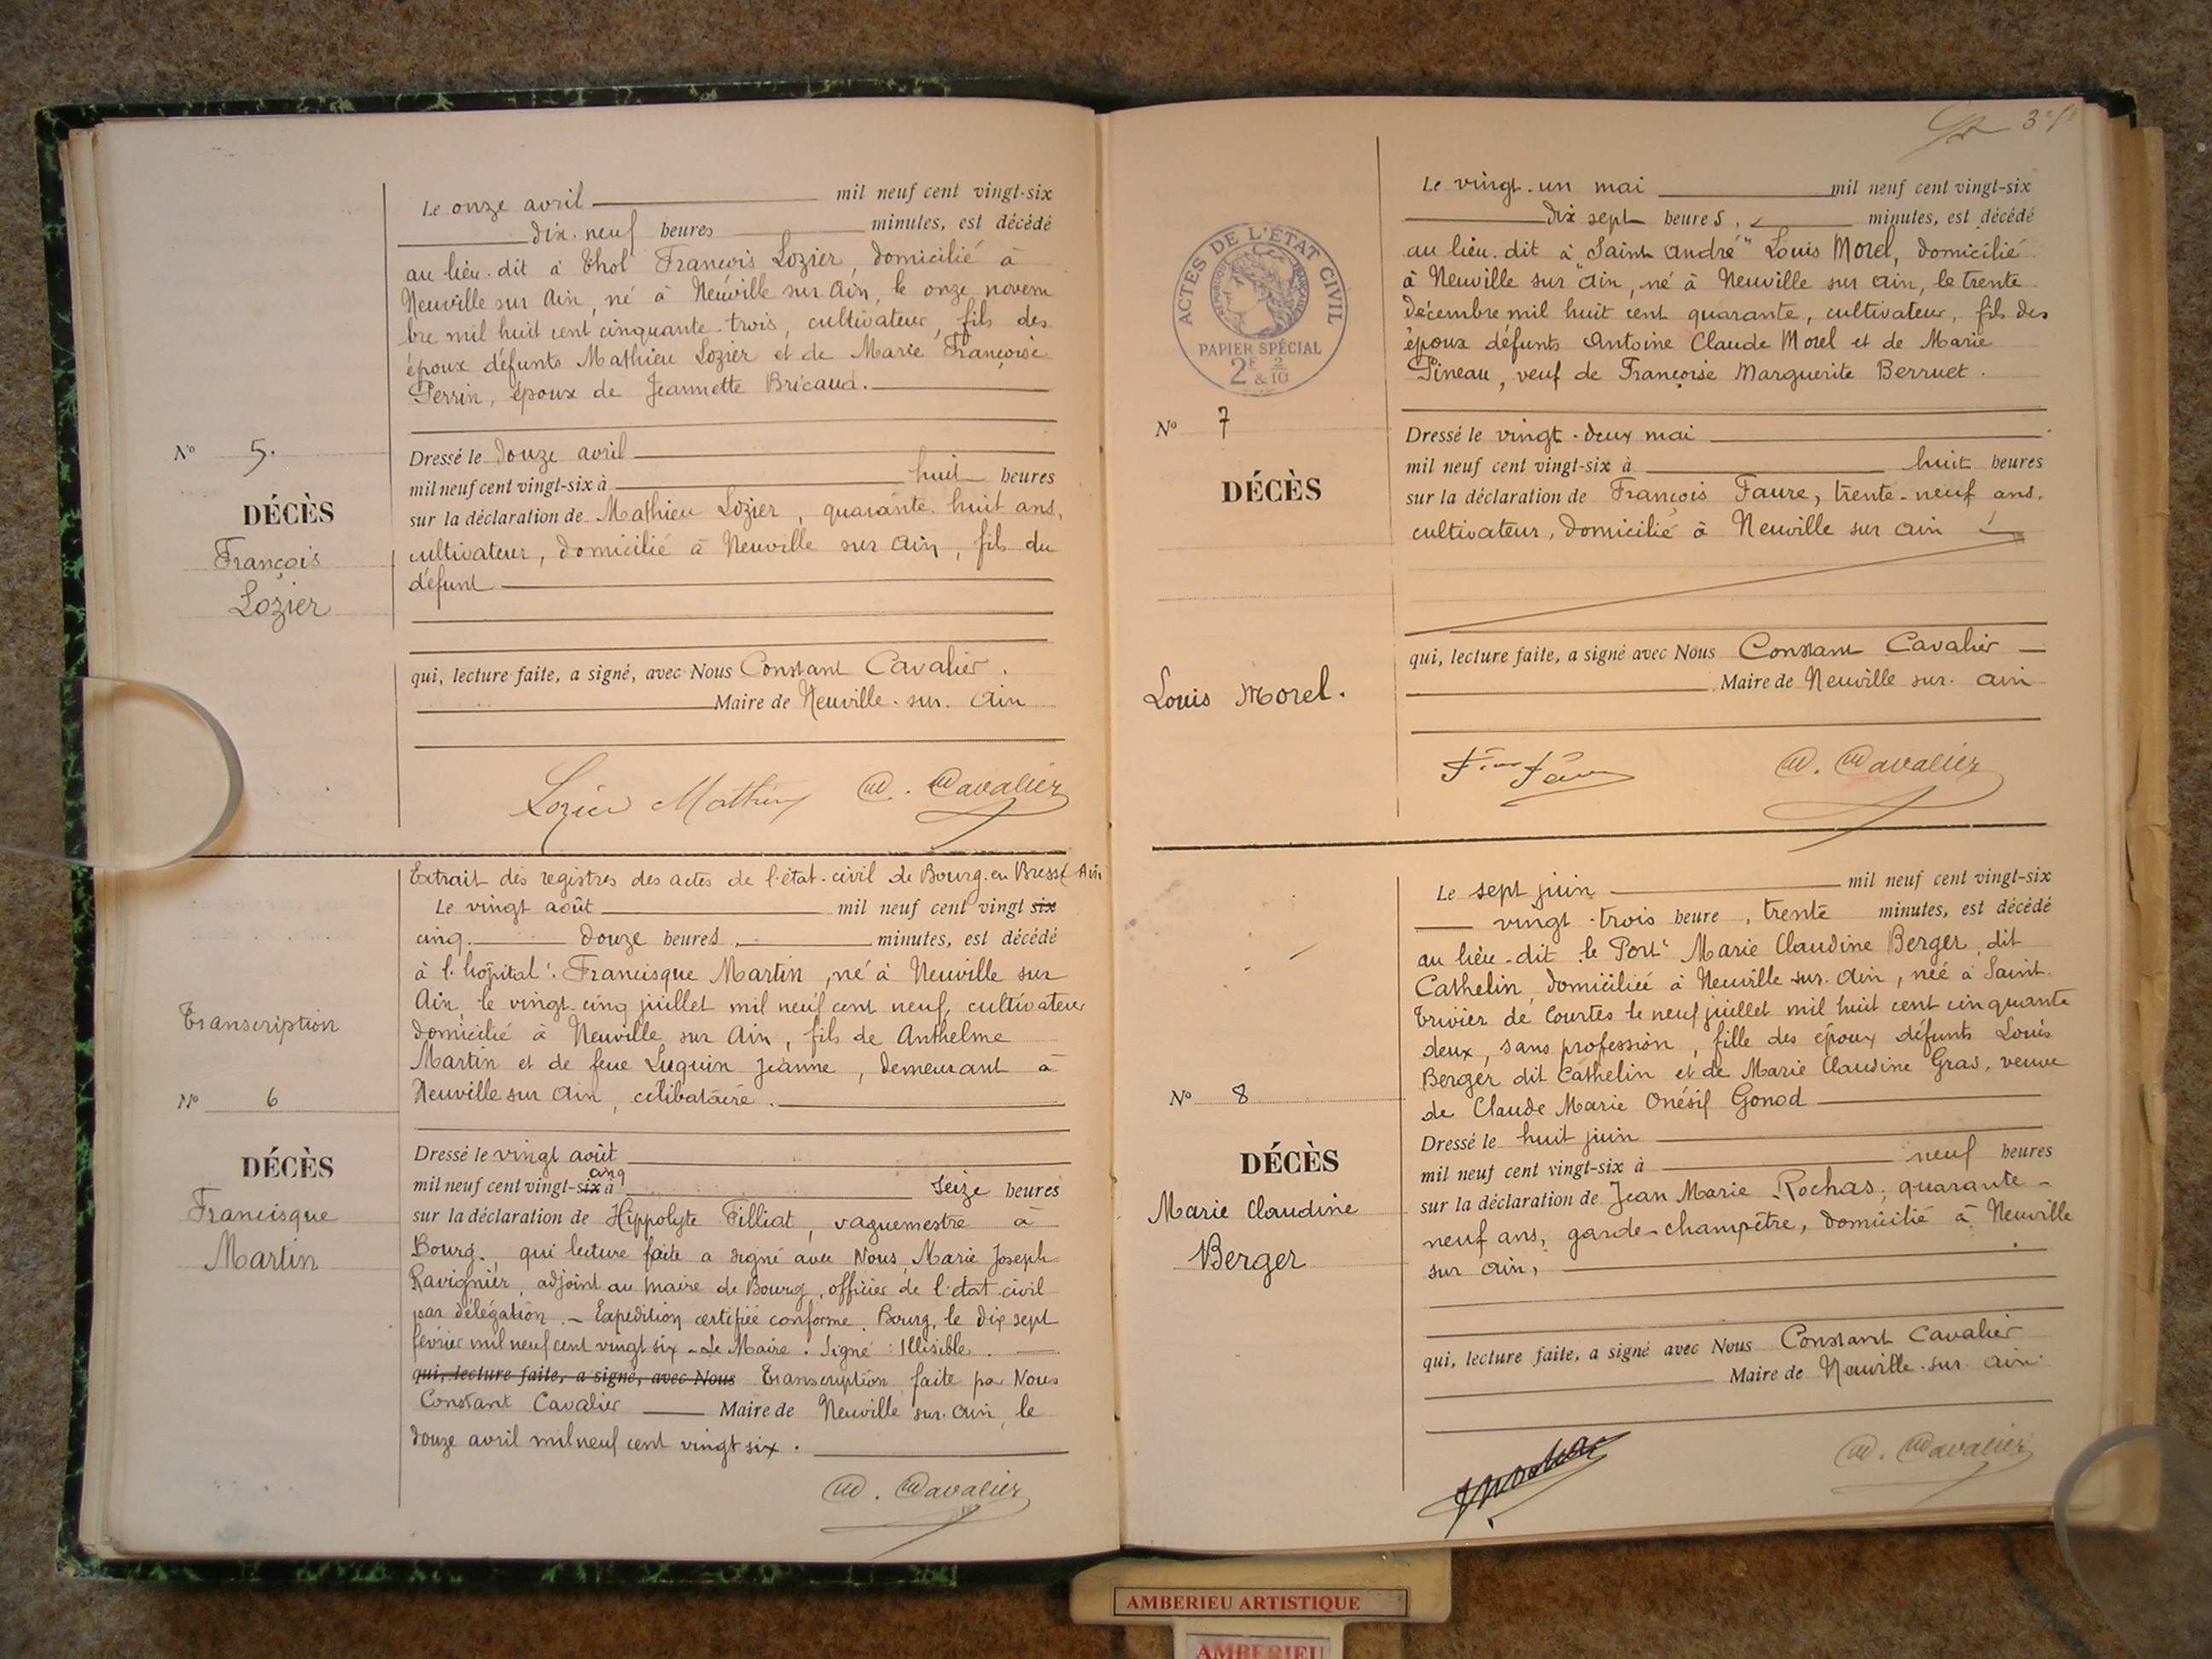 Le onze avril mil neuf cent vingt-six
dix-neuf heures minutes, est décédé
au lieu-dit à Thol François Lozier, domicilié à
Neuville sur Ain, né à Neuville sur Ain, le onze novem
bre mil huit cent cinquante-trois, cultivateur, fils des
époux défunts Mathieu Lozier et de Marie Françoise
Perrin, époux de Jeannette Bricaud.
N° 5.
DÉCÈS
François
Lozier
Dressé le douze avril
mil neuf cent vingt-six à huit heures
sur la déclaration de Mathieu Lozier, quarante-huit ans,
cultivateur, domicilié à Neuville sur Ain, fils du
défunt
qui, lecture faite, a signé, avec Nous Constant Cavalier.
Maire de Neuville-sur-Ain
Lozier Mathieu C. Cavalier
Extrait des registres des actes de l'état-civil de Bourg-en-Bresse Ain
Le vingt août mil neuf cent vingt six
cinq. douze heures, minutes, est décédé
à l'hôpital: Francisque Martin, né à Neuville sur
Ain, le vingt-cinq juillet mil neuf cent neuf, cultivateur
domicilié à Neuville sur Ain, fils de Anthelme
Martin et de feue Luquin Jeanne, demeurant à
Neuville sur Ain, célibataire.
Transcription
N° 6
DÉCÈS
Francisque
Martin
Dressé le vingt août
cinq
mil neuf cent vingt-six à seize heures
sur la déclaration de Hippolyte Pilliat, vaguemestre à
Bourg, qui lecture faite a signé avec Nous, Marie Joseph
Ravignier, adjoint au maire de Bourg, officier de l'état-civil
par délégation. - Expédition certifiée conforme. Bourg, le dix sept
février mil neuf cent vingt six - Le Maire. Signé: Illisible.
qui, lecture faite, a signé, avec Nous Transcription faite par Nous
Constant Cavalier Maire de Neuville-sur-Ain, le
douze avril mil neuf cent vingt six.
C. Cavalier
Le vingt-un mai mil neuf cent vingt-six
dix sept heures, minutes, est décédé
au lieu-dit à "Saint André" Louis Morel, domicilié
à Neuville sur Ain, né à Neuville sur Ain, le trente
décembre mil huit cent quarante, cultivateur, fils des
époux défunts Antoine Claude Morel et de Marie
Pineau, veuf de Françoise Marguerite Berruet.
ACTES DE L'ÉTAT CIVIL
RÉPUBLIQUE FRANÇAISE
PAPIER SPÉCIAL
2F & 2/10
N° 7
DÉCÈS
Louis Morel.
Dressé le vingt-deux mai
mil neuf cent vingt-six à huit heures
sur la déclaration de François Faure, trente-neuf ans,
cultivateur, domicilié à Neuville sur Ain
qui, lecture faite, a signé avec Nous Constant Cavalier
Maire de Neuville-sur-Ain
C. Cavalier
Le sept juin mil neuf cent vingt-six
vingt-trois heure, trente minutes, est décédé
au lieu-dit le Port" Marie Claudine Berger dit
Cathelin, domiciliée à Neuville-sur-Ain, née à Saint
Trivier de Courtes le neuf juillet mil huit cent cinquante
deux, sans profession, fille des époux défunts Louis
Berger dit Cathelin et de Marie Claudine Gras, veuve
de Claude Marie Onésif Gonod
N° 8
DÉCÈS
Marie Claudine
Berger
Dressé le huit juin
mil neuf cent vingt-six à neuf heures
sur la déclaration de Jean Marie Rochas, quarante-
neuf ans, garde-champêtre, domicilié à Neuville
sur Ain,
qui, lecture faite, a signé avec Nous Constant Cavalier
Maire de Neuville-sur-Ain
C. Cavalier
AMBERIEU ARTISTIQUE
AMBERIEU